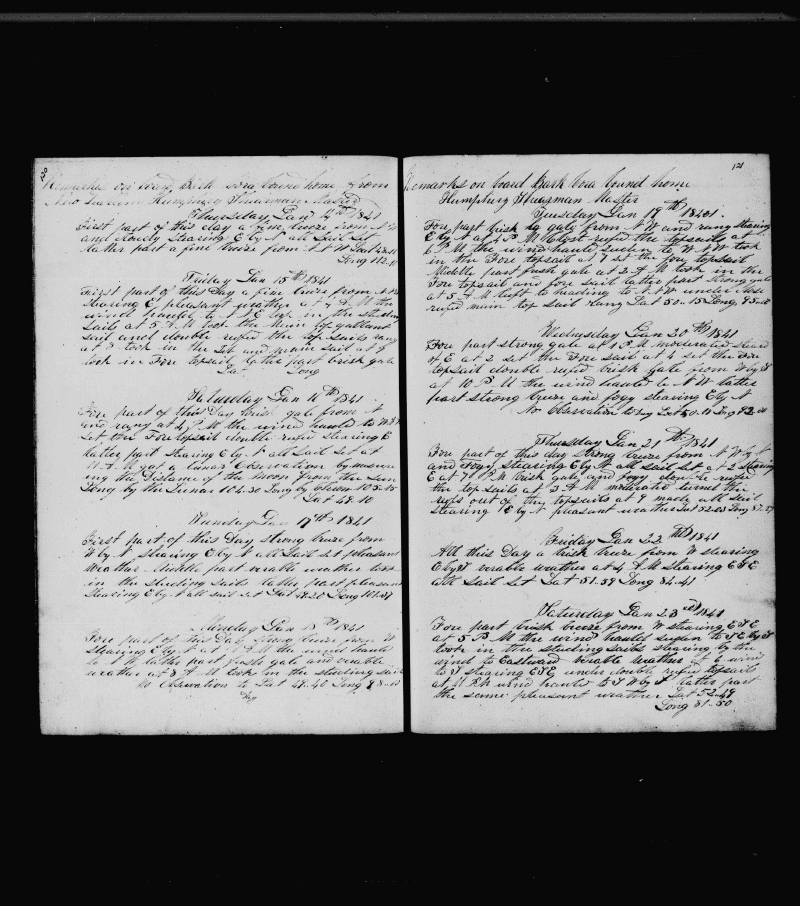 Remarks on board Bark bora bound home from
Humphrey Shearman Master
Thursday Jan 14th 1841
First part of this day a fine breeze from N W
and cloudy Stearing E by N all Sail Set
latter part a fine breeze from N N W Lat 48-11
Long 112-
Friday Jan 15th 1841
First part of this Day a fine from N W
Stearing E pleasant weather at 4 A M the
wind hauled to N N E took in the studing
Sails at 5 A M took the Main top gallant
Sail and double rufed the top Sails rang
at 8 took in the Jib and main Sail at 9
took in Fore topsail latter part brisk gale
Lat Long
Saturday Jan 16th 1841
Fore part of this Day brisk gale from N
and rang at 4 P M the wind hauld to W N W
Set the Fore topsail double rufed Stearing E
latter part Stearing E by N all Sail Set at
11 A M got a lunar Observation by measur
ing the Distance of the Moon from the Sun
Long by the Lunar 104-30 Long by Chron 105-15
Lat 48-10
Sunday Jan 17th 1841
First part of this Day strong breeze from
W by N stearing E by N all Sail Set pleasant
Weather Middle part verable weather took
in the studing sails latter part pleasant
Stearing E by N all sail set Lat 48-20 Long 101-31
Monday Jan 18th 1841
Fore part of this Day strong breeze from W
Stearing E by N at A M the wind hauld
to N W latter part fresh gale and verable
weather at 8 A M took in the studing sail
No Observation to Day Lat 49-40 Long 98-10
121
Remarks on board Bark bora bound home
Humphrey Shearman Master
Tuesday Jan 19th 1841
Fore part brisk gale from N W and rang stearing
E by N at 4 P M Close rufed the topsails at
6 P M the wind hauld suden to W N W took
in the Fore topsail at 7 set the fore topsail
Middle part fresh gale at 2 A M took in the
Fore topsail and fore sail latter part strong gale
at 5 A M luft to heading to N N W under close
rufed main top sail rang Lat 50-15 Long 95-10
Wednesday Jan 20th 1841
Fore part strong gale at 1 P M moderated steard
of E at 2 set the Fore sail at 4 set the Fore
topsail double rufed brisk gale from W by S
at 10 P M the wind hauld to N W latter
part strong breeze and fogy stearing E by N
No Observation to Day Lat 50-10 Long 92-00
Thursday Jan 21st 1841
Fore part of this day strong breeze from N W by N
and Fogy Stearing E by N all sail set at 2 stearing
E at 7 P M brisk gale and fogy double rufed
the top sails at 2 A M moderated turned the
rufs out of the topsails at 9 made all sail
Stearing E by N pleasant weather Lat 52-03 Long 87-27
Friday Jan 22nd 1841
All this Day a brisk breeze from W stearing
E by S verable weather at 4 A M stearing E S E
all sail set Lat 51-59 Long 84-41
Saturday Jan 23rd 1841
Fore part brisk breeze from W stearing E S E
at 5 P M the wind hauld suden to S E by S
took in the studing sails stearing by the
wind to Eastward verable weather at 6 wind
to S stearing E S E under double rufed topsails
at 11 P M wind hauld to S W by S latter part
the same pleasant weather Lat 52-49
Long 81-50